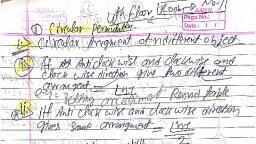 Page No.:
Date:
① Circular Permutation
Circular Arrgment of n different object
If Anticlockwise and clockwise and
clock wise direction give two different
arrangment = Ln-1
Sitting arrangment Round table
If Anti clock wise and clock wise direction
gives same arrangment = Ln-1
2